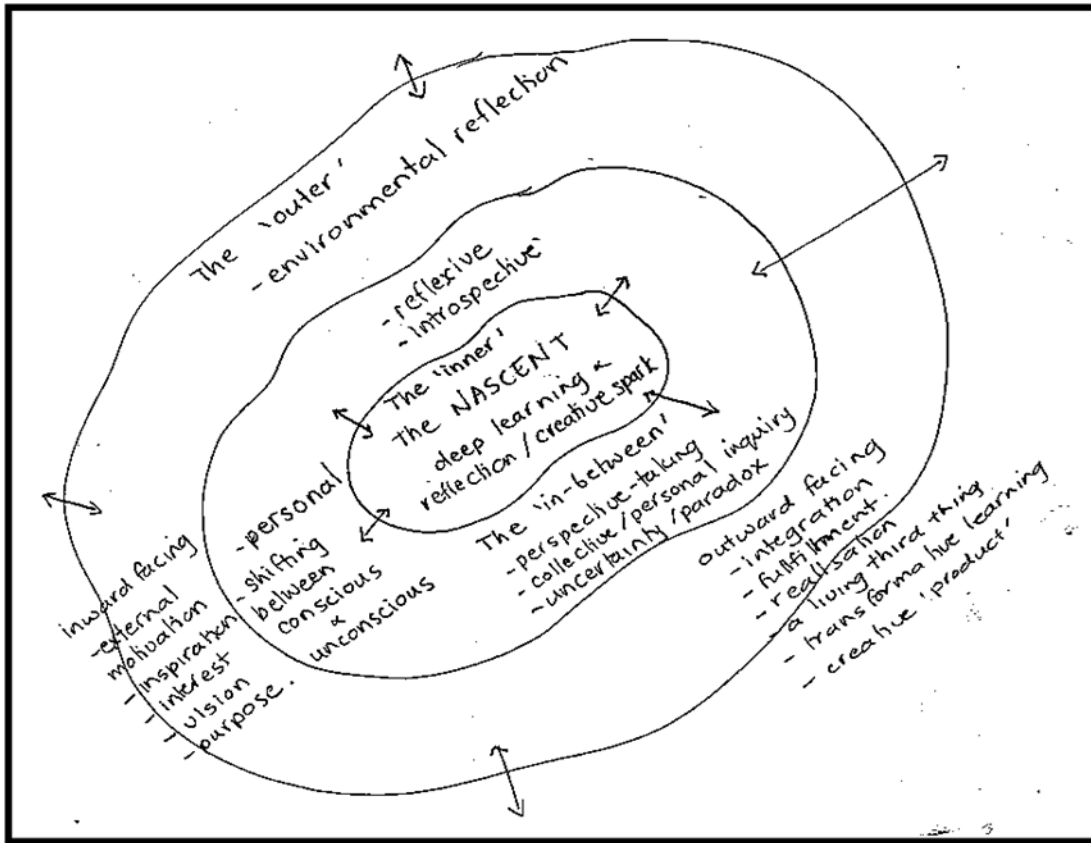 The 'outer'
- environmental reflection
- reflexive
- introspective'
The 'inner'
The NASCENT
deep learning &
reflection / creative spark
- personal
- shifting
between
conscious
&
unconscious
The 'in-between'
- perspective-taking
- collective / personal inquiry
- uncertainty / paradox
inward facing
- external
motivation
- inspiration
- interest
- vision
- purpose.
outward facing
- integration
- fulfillment.
- realisation
- a living third thing
- transformative learning
- creative 'product'
3